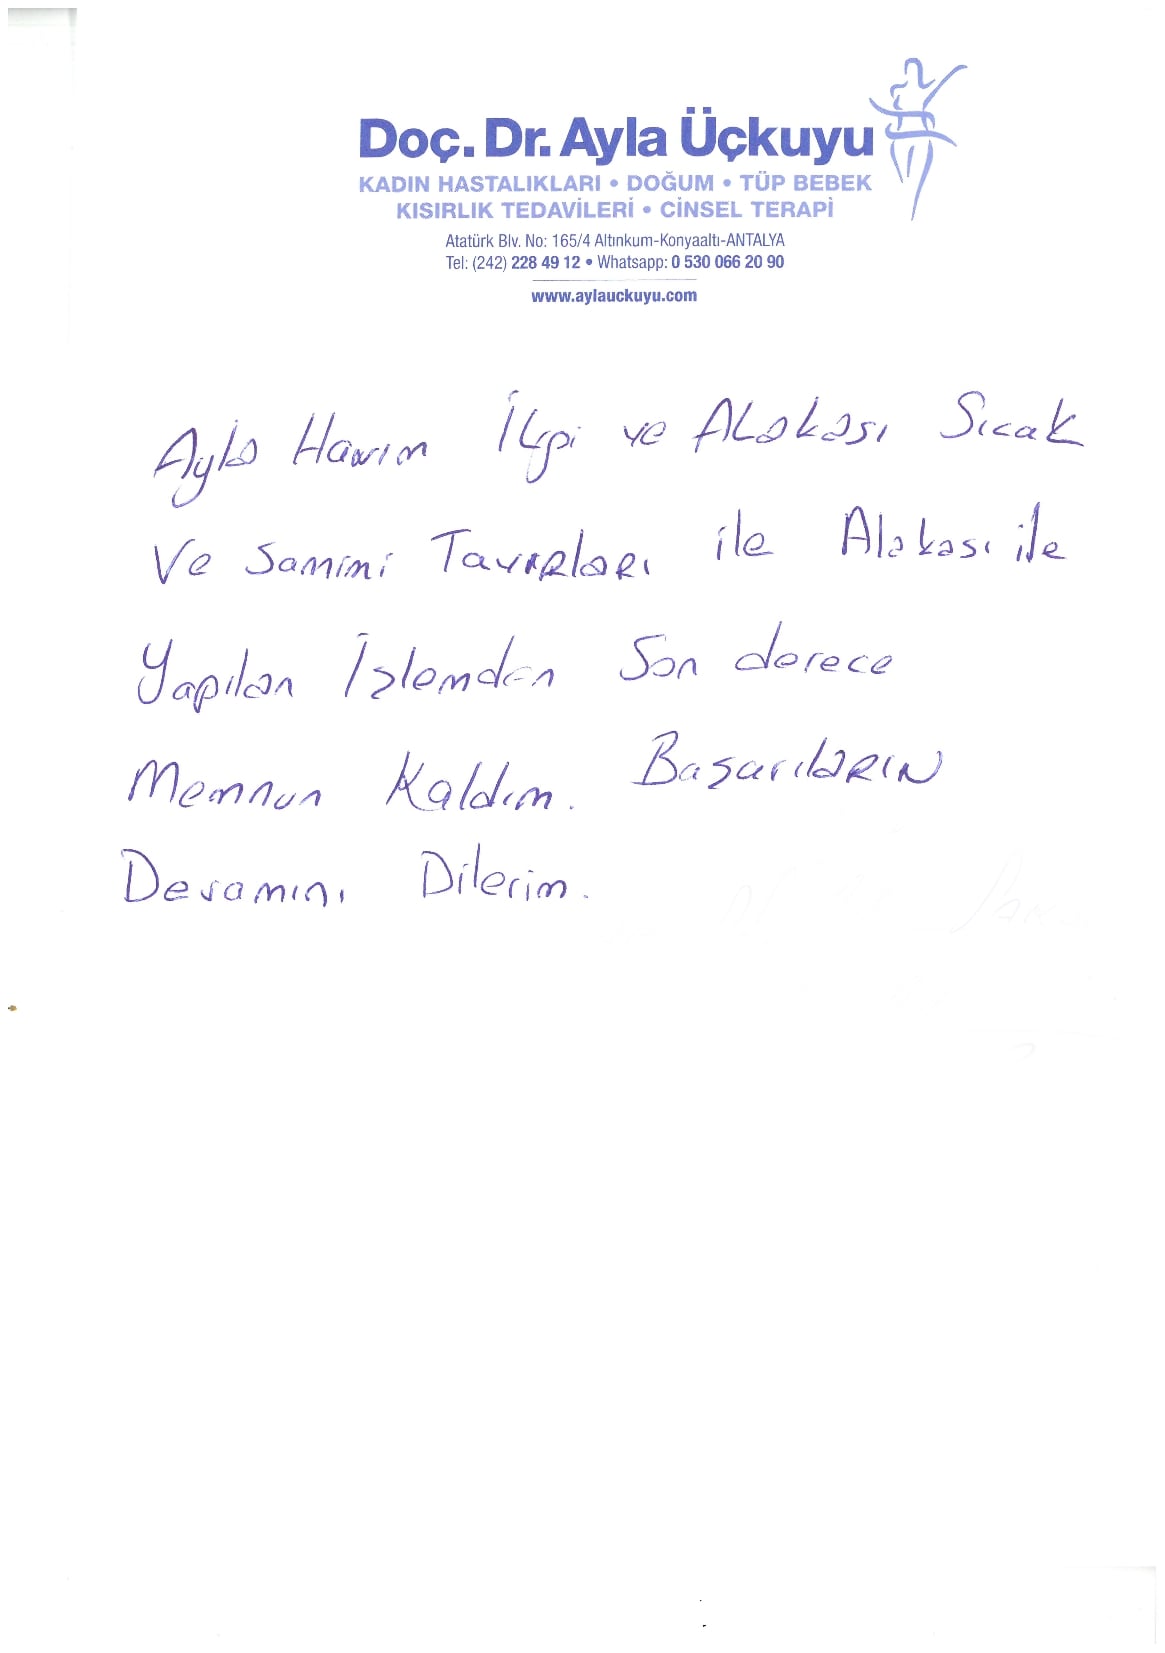 Doç. Dr. Ayla Üçkuyu
KADIN HASTALIKLARI • DOĞUM • TÜP BEBEK
KISIRLIK TEDAVİLERİ • CİNSEL TERAPİ
Atatürk Blv. No: 165/4 Altınkum-Konyaaltı-ANTALYA
Tel: (242) 228 49 12 • Whatsapp: 0 530 066 20 90
www.aylauckuyu.com
Ayla Hanım İlgi ve ALakası Sıcak
Ve Samimi TavıRlaRı ile Alakası ile
Yapılan İşlemden Son derece
Memnun Kaldım. BaşarılaRIN
Devamını Dilerim.